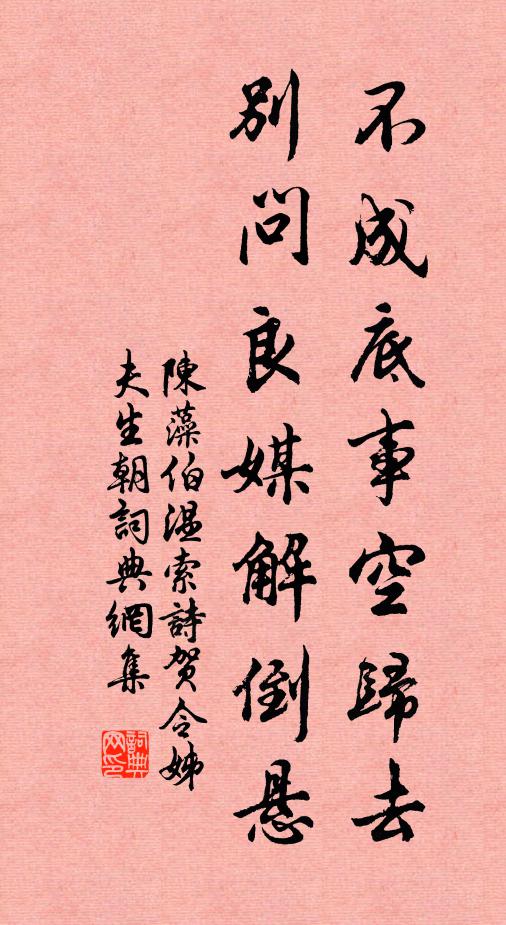 不成底事空歸去
別問良媒解倒懸
陳藻伯温索詩賀令姊
夫生朝詞典網集
詞典网印